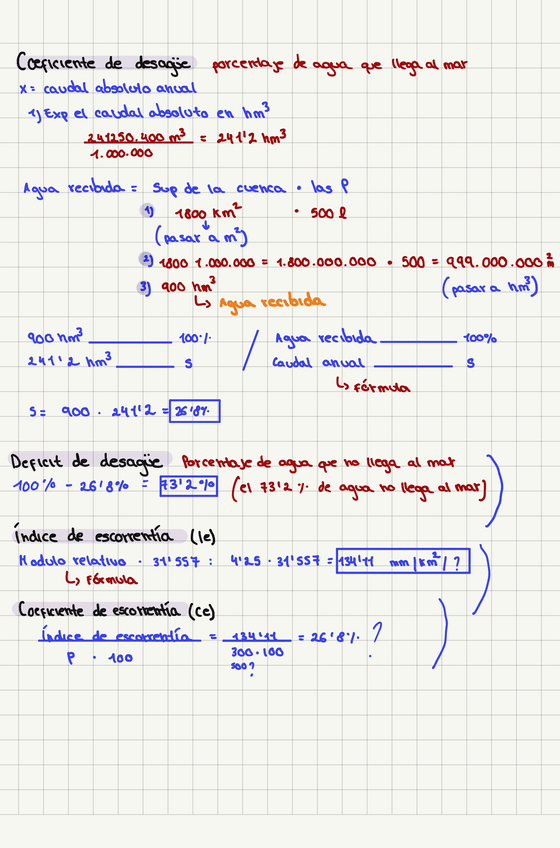 Coeficiente de desagüe porcentaje de agua que llega al mar
x = caudal absoluto anual
1) Exp el caudal absoluto en hm³
241250.400 m³ / 1.000.000 = 241'2 hm³
Agua recibida = Sup de la cuenca · las P
1) 1800 Km² · 500 l
(pasar a m²)
2) 1800 · 1.000.000 = 1.800.000.000 · 500 = 999.000.000 m²
3) 900 hm³ (pasar a hm³)
↳ Agua recibida
900 hm³ ——— 100% / Agua recibida ——— 100%
241'2 hm³ ——— S Caudal anual ——— S
↳ fórmula
S = 900 · 241'2 = 26'8%
Deficit de desagüe Porcentaje de agua que no llega al mar
100% - 26'8% = 73'2% (el 73'2% de agua no llega al mar)
Índice de escorrentía (Ie)
Modulo relativo · 31'557 : 4'25 · 31'557 = 134'11 mm/km²/?
↳ fórmula
Coeficiente de escorrentía (ce)
Índice de escorrentía = 134'11 = 26'8% ?
P · 100 300·100
500?